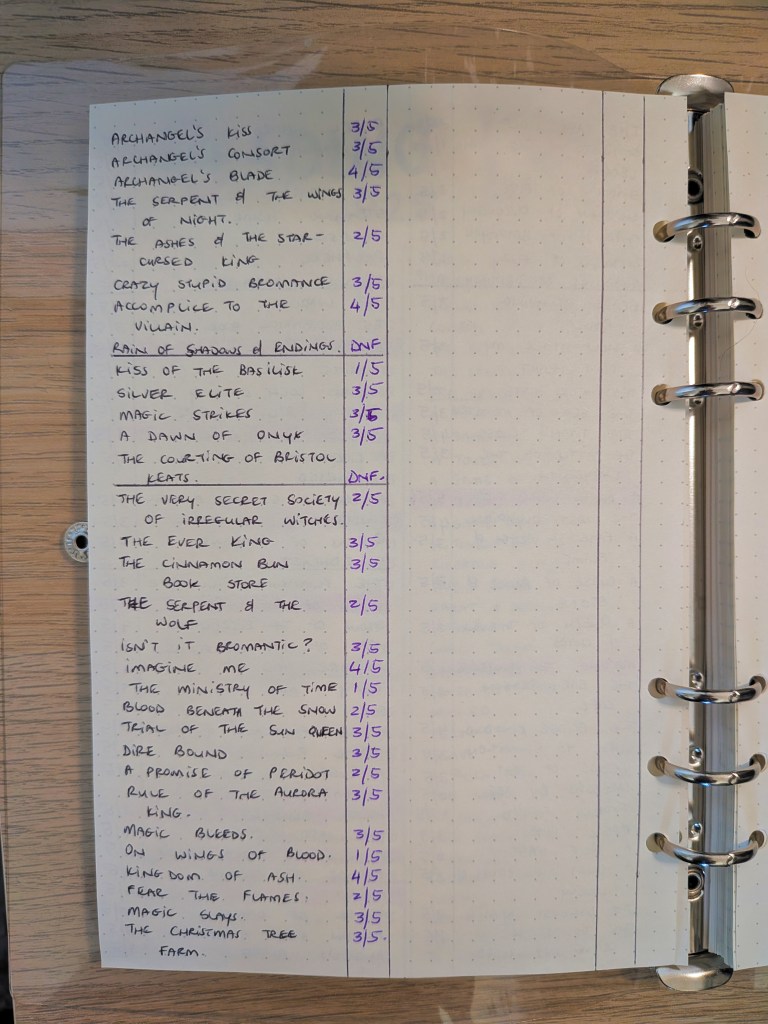 ARCHANGEL'S KISS 3/5
ARCHANGEL'S CONSORT 3/5
ARCHANGEL'S BLADE 4/5
THE SERPENT & THE WINGS 3/5
OF NIGHT.
THE ASHES & THE STAR- 2/5
CURSED KING
CRAZY STUPID BROMANCE 3/5
ACCOMPLICE TO THE 4/5
VILLAIN.
RAIN OF SHADOWS & ENDINGS. DNF
KISS OF THE BASILISK 1/5
SILVER ELITE 3/5
MAGIC STRIKES 3/5
A DAWN OF ONYX 3/5
THE COURTING OF BRISTOL
KEATS. DNF.
THE VERY SECRET SOCIETY 2/5
OF IRREGULAR WITCHES.
THE EVER KING 3/5
THE CINNAMON BUN 3/5
BOOK STORE
THE SERPENT & THE 2/5
WOLF
ISN'T IT BROMANTIC? 3/5
IMAGINE ME 4/5
THE MINISTRY OF TIME 1/5
BLOOD BENEATH THE SNOW 2/5
TRIAL OF THE SUN QUEEN 3/5
DIRE BOUND 3/5
A PROMISE OF PERIDOT 2/5
RULE OF THE AURORA 3/5
KING.
MAGIC BLEEDS. 3/5
ON WINGS OF BLOOD. 1/5
KINGDOM OF ASH. 4/5
FEAR THE FLAMES. 2/5
MAGIC SLAYS. 3/5
THE CHRISTMAS TREE 3/5.
FARM.